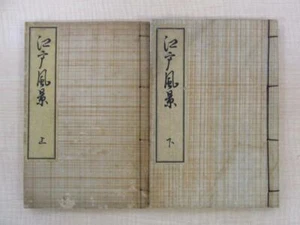 江戸風景 上
江戸風景 下